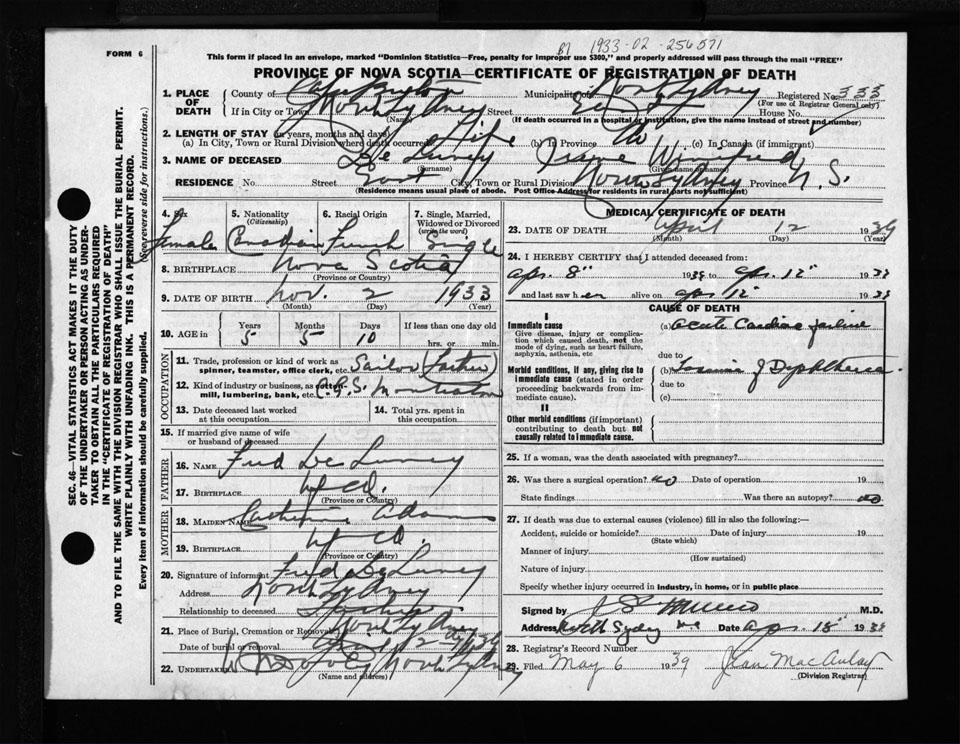 FORM 6
B7 1933-02-256571
This form if placed in an envelope, marked "Dominion Statistics—Free, penalty for improper use $300," and properly addressed will pass through the mail "FREE"
PROVINCE OF NOVA SCOTIA—CERTIFICATE OF REGISTRATION OF DEATH
SEC. 46—VITAL STATISTICS ACT MAKES IT THE DUTY
OF THE UNDERTAKER OR PERSON ACTING AS UNDER-
TAKER TO OBTAIN ALL THE PARTICULARS REQUIRED
IN THE "CERTIFICATE OF REGISTRATION OF DEATH"
AND TO FILE THE SAME WITH THE DIVISION REGISTRAR WHO SHALL ISSUE THE BURIAL PERMIT.
WRITE PLAINLY WITH UNFADING INK. THIS IS A PERMANENT RECORD.
Every item of information should be carefully supplied. (See reverse side for instructions.)
1. PLACE OF DEATH County of Cape Breton Municipality of North Sydney Registered No. 333
(For use of Registrar General only)
If in City or Town North Sydney Street House No.
(Name) (If death occurred in a hospital or institution, give the name instead of street and number)
2. LENGTH OF STAY (in years, months and days)
(a) In City, Town or Rural Division where death occurred Life (b) In Province do (c) In Canada (if immigrant)
3. NAME OF DECEASED De Luney Irene Winifred
(Surname) (Given name or names)
RESIDENCE No. Street East City, Town or Rural Division North Sydney Province N.S.
(Residence means usual place of abode. Post Office Address for residents in rural parts not sufficient)
4. Sex Female
5. Nationality (Citizenship) Canadian
6. Racial Origin French
7. Single, Married, Widowed or Divorced (write the word) Single
8. BIRTHPLACE Nova Scotia
(Province or Country)
9. DATE OF BIRTH Nov. 2 1933
(Month) (Day) (Year)
10. AGE in Years 5 Months 5 Days 10 If less than one day old hrs. or min.
OCCUPATION
11. Trade, profession or kind of work as spinner, teamster, office clerk, etc. Sailor (Father)
12. Kind of industry or business, as cotton mill, lumbering, bank, etc.
13. Date deceased last worked at this occupation
14. Total yrs. spent in this occupation
15. If married give name of wife or husband of deceased
FATHER
16. NAME Fred De Luney
17. BIRTHPLACE Nfld.
(Province or Country)
MOTHER
18. MAIDEN NAME Catherine Adams
19. BIRTHPLACE Nfld.
(Province or Country)
20. Signature of informant Fred De Luney
Address North Sydney
Relationship to deceased Father
21. Place of Burial, Cremation or Removal North Sydney
Date of burial or removal April
22. UNDERTAKER North Sydney
(Name and address)
MEDICAL CERTIFICATE OF DEATH
23. DATE OF DEATH April 12 1939
(Month) (Day) (Year)
24. I HEREBY CERTIFY that I attended deceased from:
Apr. 8" 1939 to Apr. 12" 1939
and last saw her alive on Apr 12" 1939
CAUSE OF DEATH
I
Immediate cause
Give disease, injury or complication which caused death, not the mode of dying, such as heart failure, asphyxia, asthenia, etc
(a) Acute Cardiac failure
due to
Morbid conditions, if any, giving rise to immediate cause (stated in order proceeding backwards from immediate cause).
(b) Toxaemia of Diphtheria
due to
(c)
II
Other morbid conditions (if important) contributing to death but not causally related to immediate cause.
25. If a woman, was the death associated with pregnancy?
26. Was there a surgical operation? no Date of operation 19
State findings Was there an autopsy? no
27. If death was due to external causes (violence) fill in also the following:—
Accident, suicide or homicide? Date of injury 19
(State which)
Manner of injury
(How sustained)
Nature of injury
Specify whether injury occurred in industry, in home, or in public place
Signed by M.D.
Address North Sydney Date Apr. 18" 1939
28. Registrar's Record Number
29. Filed May 6 1939 Jean MacAulay
(Division Registrar)